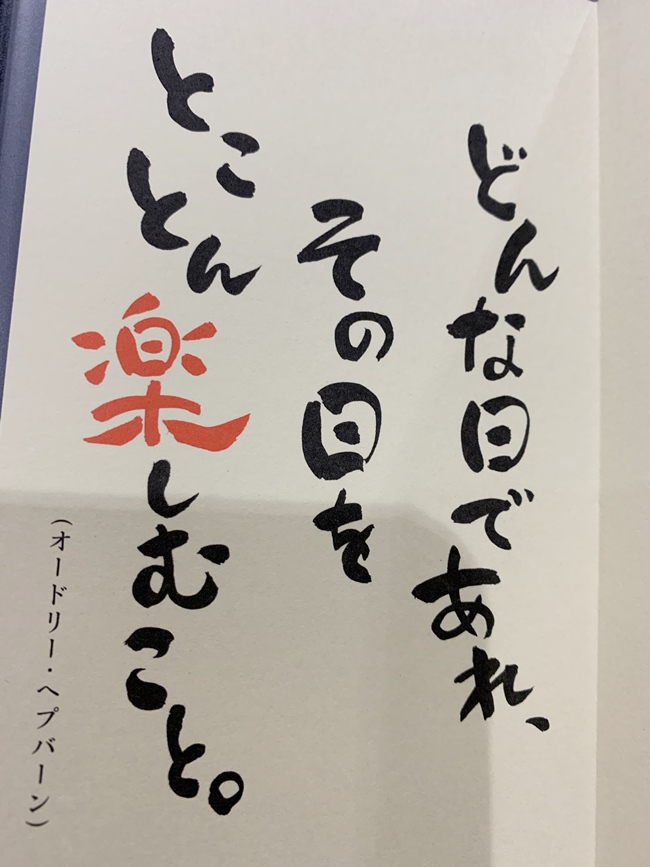 どんな日であれ、
その日を
とことん楽しむこと。
(オードリー・ヘプバーン)